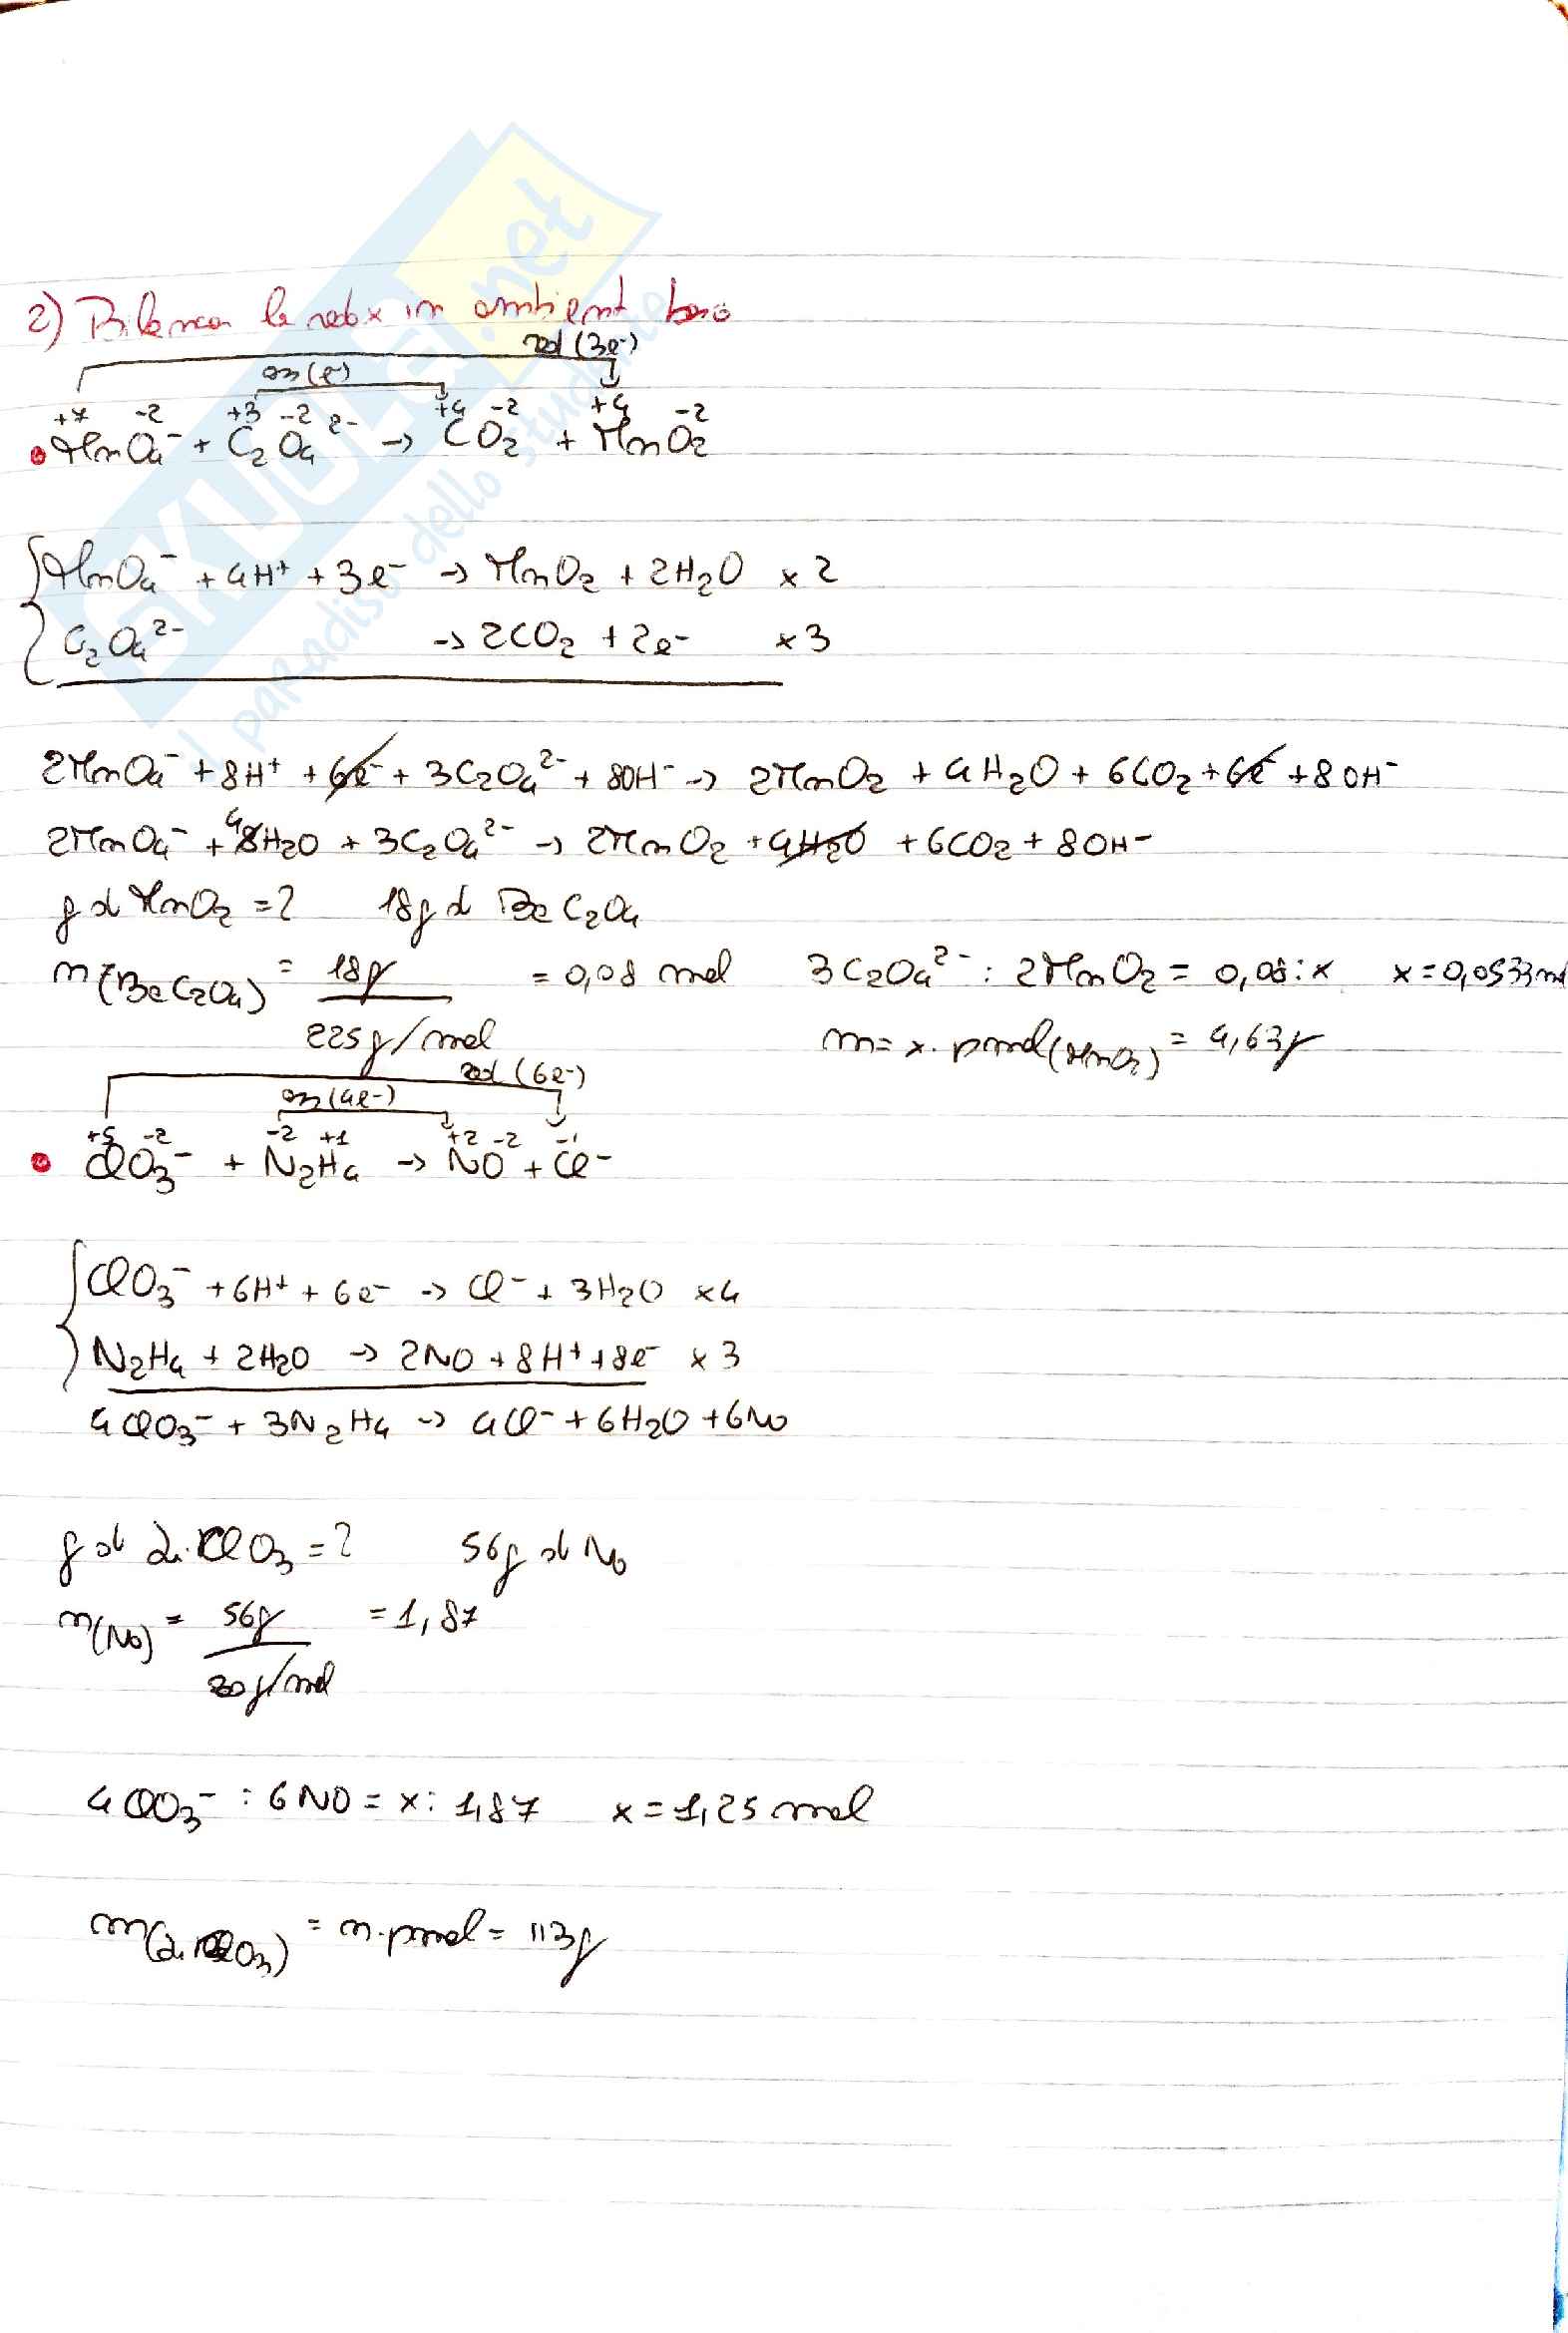 2) Bilancia le redox in ambiente basico
red (3e-)
oss (e-)
+7 -2 +3 -2 +4 -2 +4 -2
• MnO4- + C2O4 2- -> CO2 + MnO2
MnO4- + 4H+ + 3e- -> MnO2 + 2H2O x 2
C2O4 2- -> 2CO2 + 2e- x 3
2MnO4- + 8H+ + 6e- + 3C2O4 2- + 8OH- -> 2MnO2 + 4H2O + 6CO2 + 6e- + 8OH-
2MnO4- + 4 8H2O + 3C2O4 2- -> 2MnO2 + 4H2O + 6CO2 + 8OH-
g di MnO2 = ? 18g di BaC2O4
n(BaC2O4) = 18g / 225g/mol = 0,08 mol 3C2O4 2- : 2MnO2 = 0,08 : x x = 0,0533 mol
m = x · pmol(MnO2) = 4,63g
red (6e-)
oss (4e-)
+5 -2 -2 +1 +2 -2 -1
• ClO3- + N2H4 -> NO + Cl-
ClO3- + 6H+ + 6e- -> Cl- + 3H2O x 4
N2H4 + 2H2O -> 2NO + 8H+ + 8e- x 3
4ClO3- + 3N2H4 -> 4Cl- + 6H2O + 6NO
g di ClO3 = ? 56g di NO
n(NO) = 56g / 30g/mol = 1,87
4ClO3- : 6NO = x : 1,87 x = 1,25 mol
m( ClO3) = n · pmol = 113g
SKUOLA.net
il paradiso dello studente